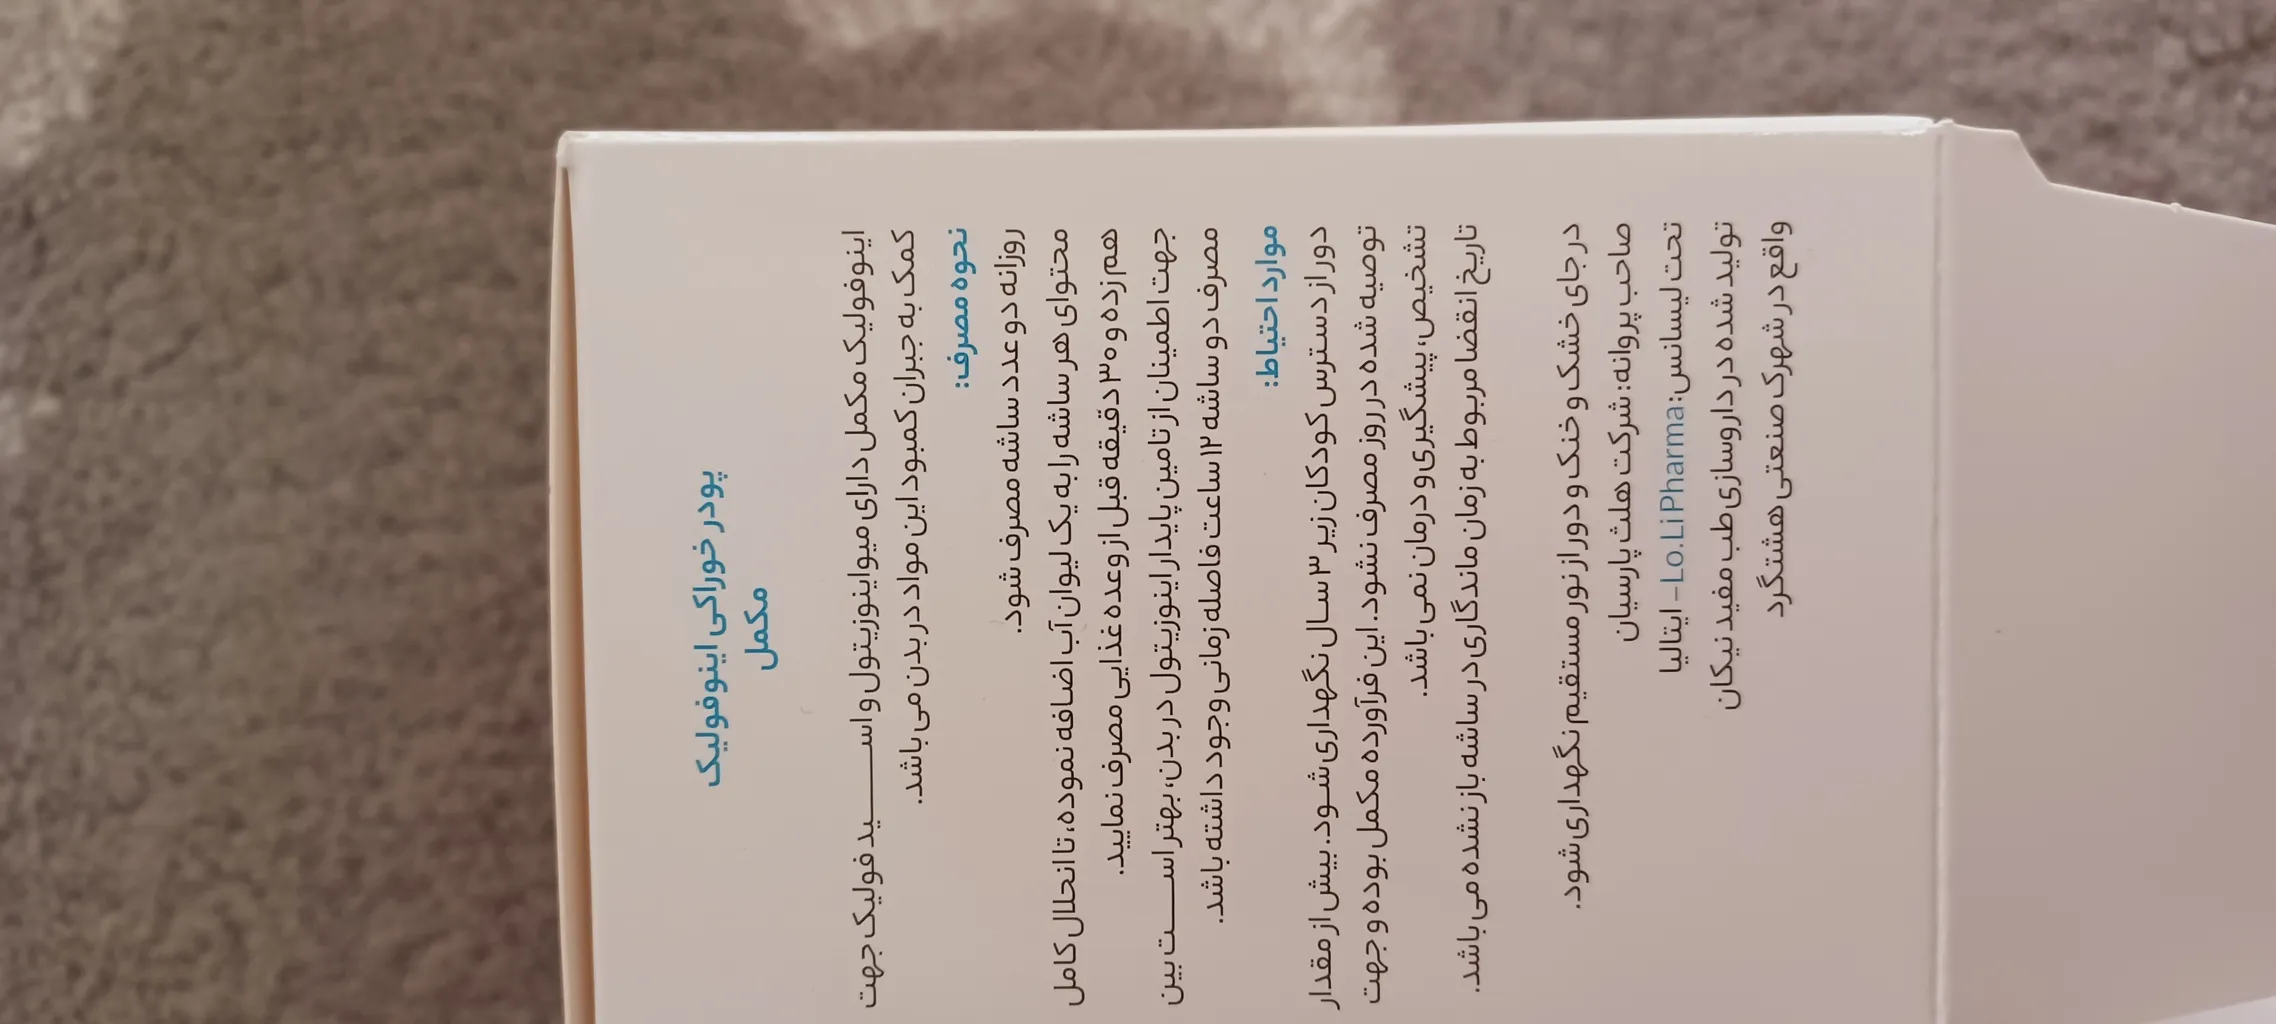 پودر خوراکی اینوفولیک
مکمل
اینوفولیک مکمل دارای میواینوزیتول و اســـــید فولیک جهت
کمک به جبران کمبود این مواد در بدن می باشد.
نحوه مصرف:
روزانه دو عدد ساشه مصرف شود.
محتوای هر ساشه را به یک لیوان آب اضافه نموده، تا انحلال کامل
هم زده و ۳۰ دقیقه قبل از وعده غذایی مصرف نمایید.
جهت اطمینان از تامین پایدار اینوزیتول در بدن، بهتر اســـت بین
مصرف دو ساشه ۱۲ ساعت فاصله زمانی وجود داشته باشد.
موارد احتیاط:
دور از دسترس کودکان زیر ۳ سـال نگهداری شـود. بیش از مقدار
توصیه شده در روز مصرف نشود. این فرآورده مکمل بوده و جهت
تشخیص، پیشگیری و درمان نمی باشد.
تاریخ انقضا مربوط به زمان ماندگاری در ساشه باز نشده می باشد.
در جای خشک و خنک و دور از نور مستقیم نگهداری شود.
صاحب پروانه: شرکت هلث پارسیان
تحت لیسانس: Lo.Li Pharma – ایتالیا
تولید شده در داروسازی طب مفید نیکان
واقع در شهرک صنعتی هشتگرد